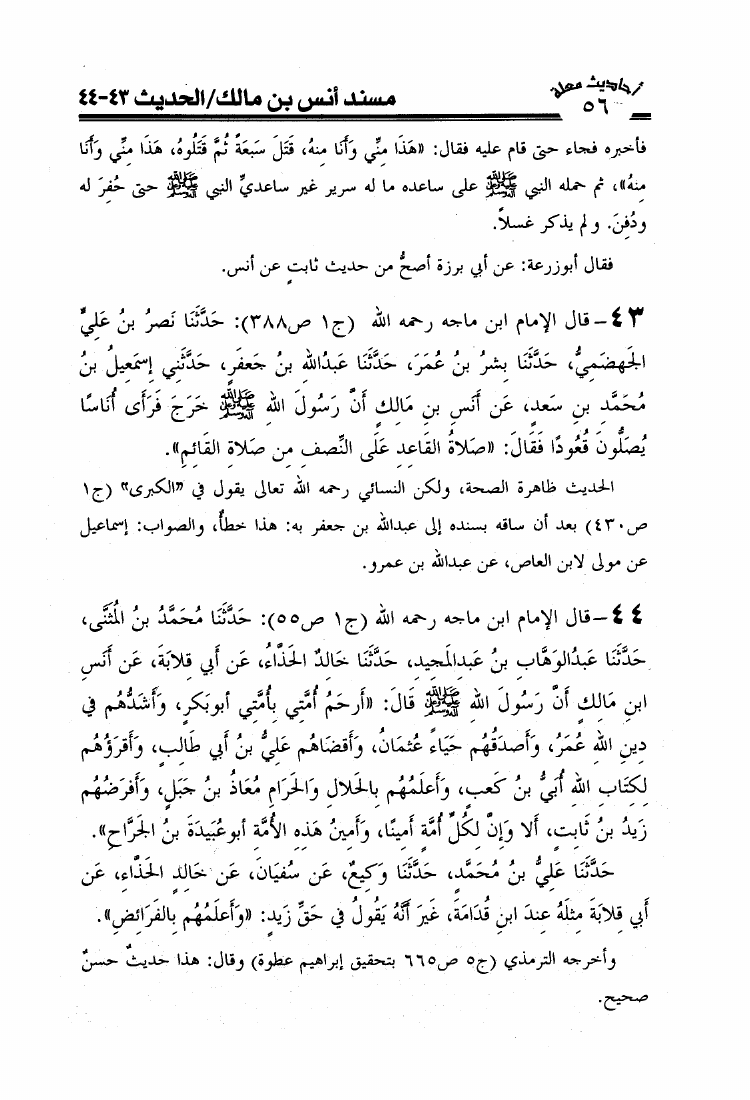 أحاديث معلة
٥٦
مسند أنس بن مالك/الحديث ٤٣-٤٤
فأخبره فجاء حتى قام عليه فقال: «هَذَا مِنِّي وَأَنَا مِنهُ، قَتَلَ سَبعَةً ثُمَّ قَتَلُوهُ، هَذَا مِنِّي وَأَنَا
مِنهُ»، ثم حمله النبي ﷺ على ساعده ما له سرير غير ساعديِّ النبي ﷺ حتى حُفِرَ له
ودُفِنَ. ولم يذكر غسلاً.
فقال أبوزرعة: عن أبي برزة أصحُّ من حديث ثابتٍ عن أنس.
٤٣- قال الإمام ابن ماجه رحمه الله (ج١ ص٣٨٨): حَدَّثَنَا نَصرُ بنُ عَلِيٍّ
الجَهضَمِيُّ، حَدَّثَنَا بِشرُ بنُ عُمَرَ، حَدَّثَنَا عَبدُالله بنُ جَعفَرٍ، حَدَّثَنِي إِسمَعِيلُ بنُ
مُحَمَّدِ بنِ سَعدٍ، عَن أَنَسِ بنِ مَالِكٍ أَنَّ رَسُولَ الله ﷺ خَرَجَ فَرَأَى أُنَاسًا
يُصَلُّونَ قُعُودًا فَقَالَ: «صَلاَةُ القَاعِدِ عَلَى النِّصفِ مِن صَلاَةِ القَائِمِ».
الحديث ظاهرة الصحة، ولكن النسائي رحمه الله تعالى يقول في "الكبرى" (ج١
ص٤٣٠) بعد أن ساقه بسنده إلى عبدالله بن جعفر به: هذا خطأٌ، والصواب: إسماعيل
عن مولى لابن العاص، عن عبدالله بن عمرو.
٤٤- قال الإمام ابن ماجه رحمه الله (ج١ ص٥٥): حَدَّثَنَا مُحَمَّدُ بنُ المُثَنَّى،
حَدَّثَنَا عَبدُالوَهَّابِ بنُ عَبدِالمَجِيدِ، حَدَّثَنَا خَالِدٌ الحَذَّاءُ، عَن أَبِي قِلاَبَةَ، عَن أَنَسِ
ابنِ مَالِكٍ أَنَّ رَسُولَ الله ﷺ قَالَ: «أَرحَمُ أُمَّتِي بِأُمَّتِي أبوبَكرٍ، وَأَشَدُّهُم فِي
دِينِ الله عُمَرُ، وَأَصدَقُهُم حَيَاءً عُثمَانُ، وَأَقضَاهُم عَلِيُّ بنُ أَبِي طَالِبٍ، وَأَقرَؤُهُم
لِكِتَابِ الله أُبَيُّ بنُ كَعبٍ، وَأَعلَمُهُم بِالحَلالِ وَالحَرَامِ مُعَاذُ بنُ جَبَلٍ، وَأَفرَضُهُم
زَيدُ بنُ ثَابِتٍ، أَلا وَإِنَّ لِكُلِّ أُمَّةٍ أَمِينًا، وَأَمِينُ هَذِهِ الأُمَّةِ أبوعُبَيدَةَ بنُ الجَرَّاحِ».
حَدَّثَنَا عَلِيُّ بنُ مُحَمَّدٍ، حَدَّثَنَا وَكِيعٌ، عَن سُفيَانَ، عَن خَالِدٍ الحَذَّاءِ، عَن
أَبِي قِلاَبَةَ مِثلَهُ عِندَ ابنِ قُدَامَةَ، غَيرَ أَنَّهُ يَقُولُ فِي حَقِّ زَيدٍ: «وَأَعلَمُهُم بِالفَرَائِضِ».
وأخرجه الترمذي (ج٥ ص٦٦٥ بتحقيق إبراهيم عطوة) وقال: هذا حديثٌ حسنٌ
صحيح.